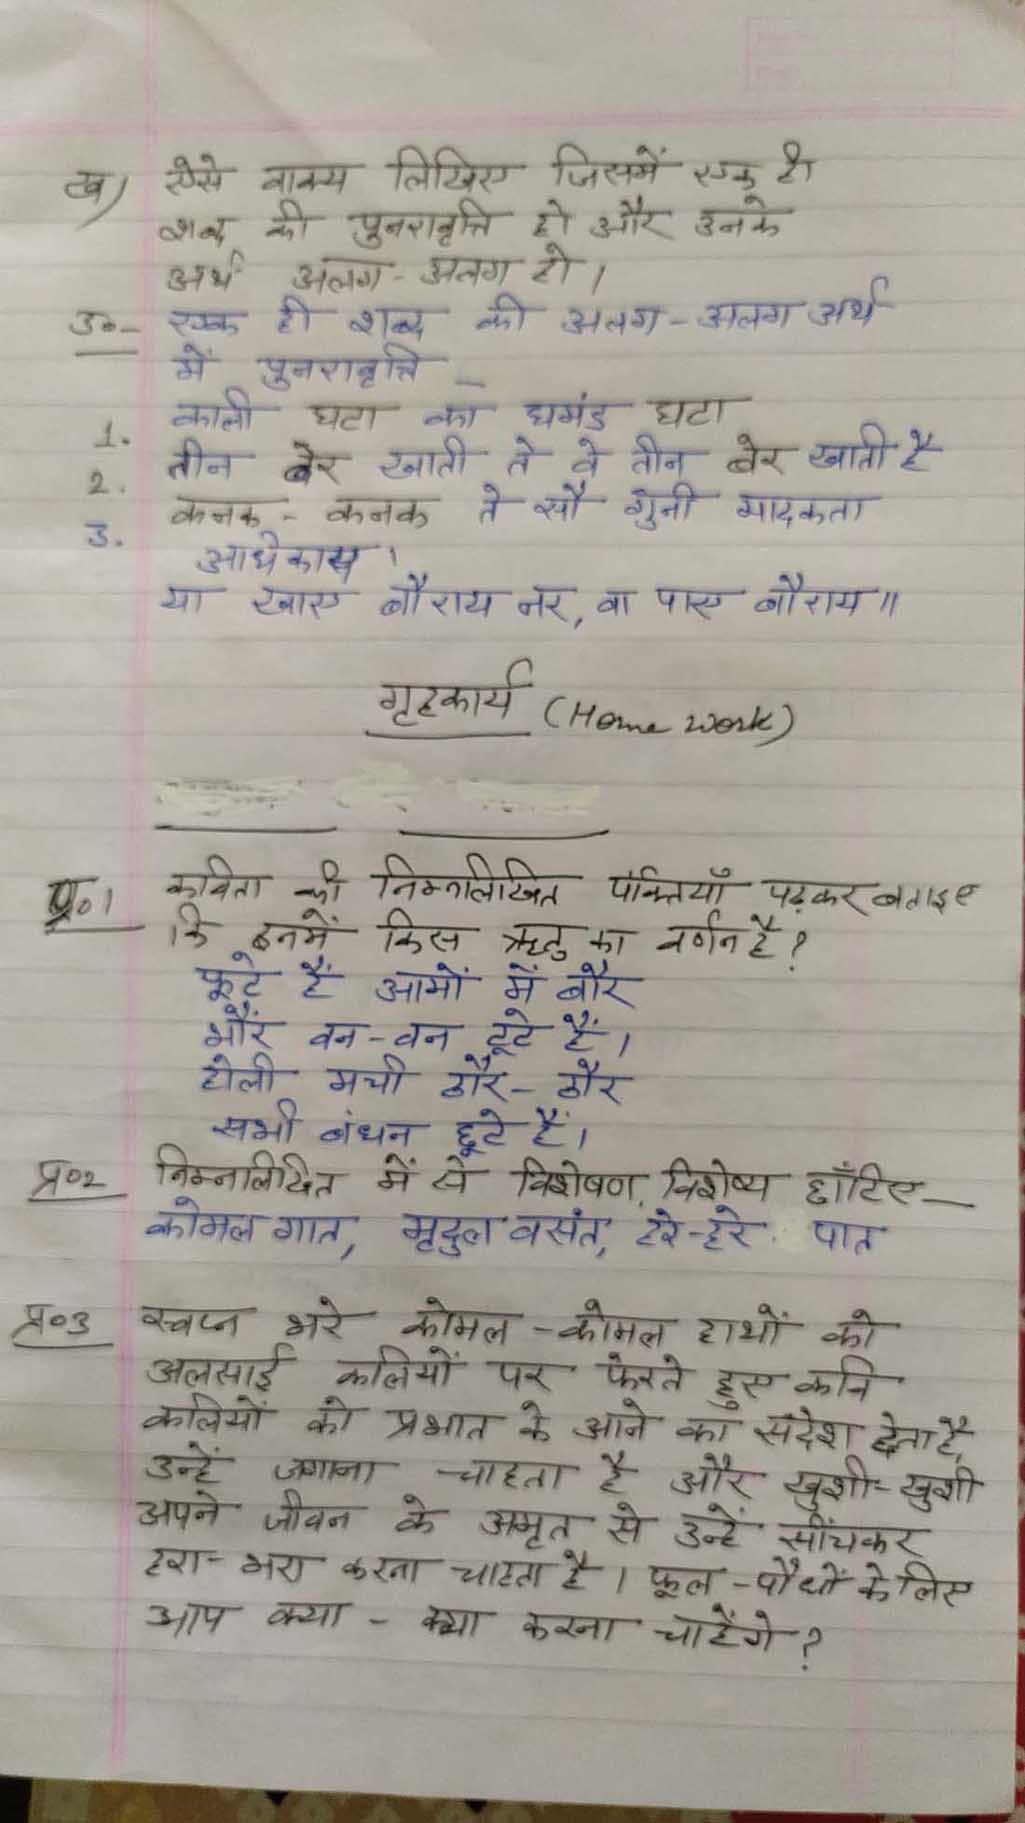 ख) ऐसे वाक्य लिखिए जिसमें एक ही
शब्द की पुनरावृत्ति हो और उनके
अर्थ अलग-अलग हो।
उ०- एक ही शब्द की अलग-अलग अर्थ
में पुनरावृत्ति -
1. काली घटा का घमंड घटा
2. तीन बेर खाती ते वे तीन बेर खाती है
3. कनक - कनक ते सौ गुनी मादकता
आधिकाय।
या खाए बौराय नर, वा पाए बौराय॥
गृहकार्य (Home work)
प्र०1 कविता की निम्नलिखित पंक्तियाँ पढ़कर बताइए
कि इनमें किस ऋतु का वर्णन है?
फूटे हैं आमों में बौर
भौंर वन-वन टूटे हैं।
होली मची ठौर-ठौर
सभी बंधन छूटे हैं।
प्र०2 निम्नलिखित में से विशेषण, विशेष्य छाँटिए-
कोमल गात, मृदुल वसंत, हरे-हरे पात
प्र०3 स्वप्न भरे कोमल-कोमल हाथों को
अलसाई कलियों पर फेरते हुए कवि
कलियों को प्रभात के आने का संदेश देता है,
उन्हें जगाना चाहता है और खुशी-खुशी
अपने जीवन के अमृत से उन्हें सींचकर
हरा-भरा करना चाहता है। फूल-पौधों के लिए
आप क्या - क्या करना चाहेंगे?